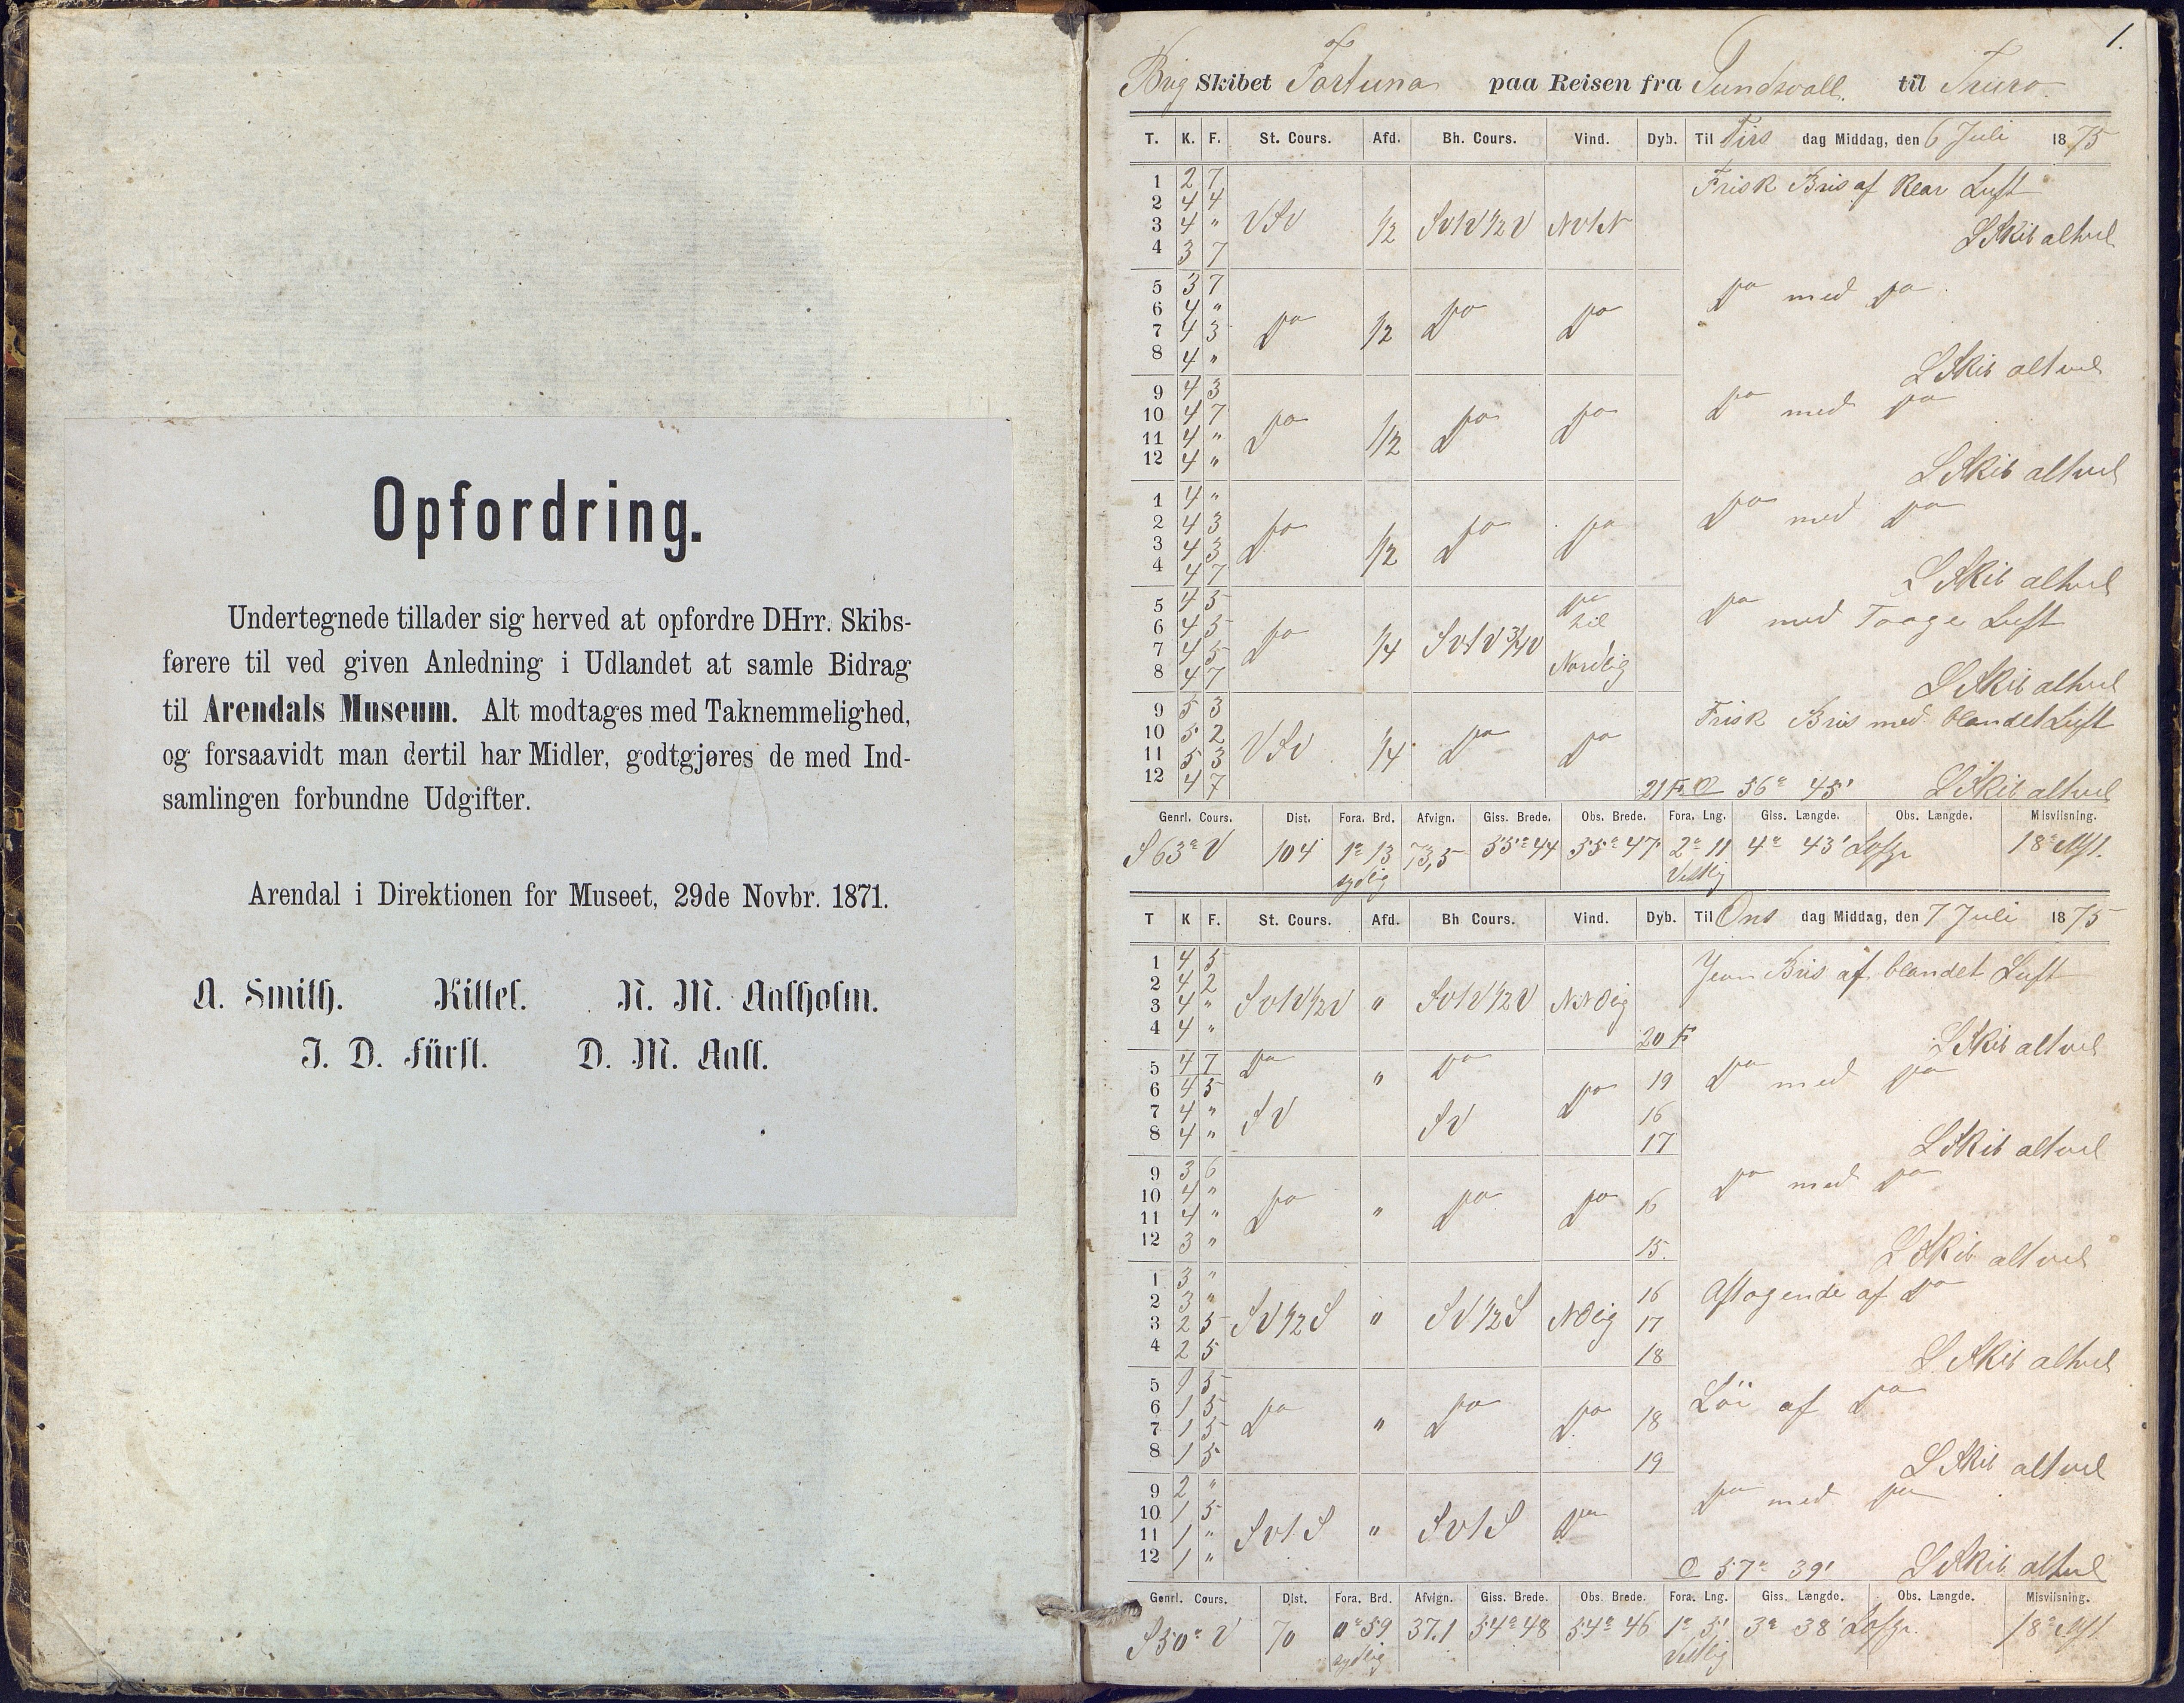 Opfordring.
Undertegnede tillader sig herved at opfordre DHrr. Skibs-
førere til ved given Anledning i Udlandet at samle Bidrag
til Arendals Museum. Alt modtages med Taknemmelighed,
og forsaavidt man dertil har Midler, godtgjøres de med Ind-
samlingen forbundne Udgifter.
Arendal i Direktionen for Museet, 29de Novbr. 1871.
A. Smith. Kittel. N. M. Aalholm.
J. D. Fürst. D. M. Aall.
1.
Brig Skibet Fortuna paa Reisen fra Sundsvall til Truro
T. K. F. St. Cours. Afd. Bh. Cours. Vind. Dyb. Til Tirs dag Middag, den 6 Juli 1875
1 2 7 Frisk Bris af klar Luft
2 4 4
3 4 " VSV 1/2 SvtV 1/2 V NvtN
4 3 7 L Skib altvel
5 3 7 Do med Do
6 4 "
7 4 3 Do 1/2 Do Do
8 4 " L Skib altvel
9 4 3 Do med Do
10 4 7
11 4 " Do 1/2 Do Do
12 4 " L Skib altvel
1 4 " Do med Do
2 4 3
3 4 3 Do 1/2 Do Do
4 4 7 L Skib altvel
5 4 5 Do til
6 4 5 Do med Taage Luft
7 4 5 Do 1/4 SvtV 3/4 V Nordlig
8 4 7 L Skib altvel
9 5 3 Frisk Bris med blandet Luft
10 5 2
11 5 3 VSV 1/4 Do Do
12 4 7 21 F. 56° 45' L Skib altvel
Genrl. Cours. Dist. Fora. Brd. Afvign. Giss. Brede. Obs. Brede. Fora. Lng. Giss. Længde. Obs. Længde. Misvilsning.
S 63° V 104 1° 13 sydlig 73,5 55° 44 55° 47 2° 11 Vestlig 4° 43' 18°
T K F. St. Cours. Afd. Bh Cours. Vind. Dyb. Til Ons dag Middag, den 7 Juli 1875
1 4 5 Jevn Bris af blandet Luft
2 4 2
3 4 " SvtV 1/2 V " SvtV 1/2 V
4 4 " 20 F L Skib altvel
5 4 7 Do " Do
6 4 5 Do 19 Do med Do
7 4 " SV SV 16
8 4 " 17 L Skib altvel
9 3 6 Do med Do
10 4 " 16
11 4 " Do " Do Do
12 3 " 15. L Skib altvel
1 3 " 16 Aftagende af Do
2 3 "
3 2 5 SV 1/2 S " SV 1/2 S 17
4 2 5 18 L Skib altvel
5 1 5 Lör af Do
6 1 5
7 1 5 Do " Do Do 18
8 1 5 19 L Skib altvel
9 2 " Do med Do
10 1 5
11 1 " SvtS " SvtS Do
12 1 " 57° 39' L Skib altvel
Genrl. Cours. Dist. Fora. Brd. Afvign. Giss. Brede. Obs. Brede. Fora. Lng. Giss. Længde. Obs. Længde. Misvilsning.
S 50° V 70 0° 59 sydlig 37.1 54° 48 54° 46 1° 5' Vestlig 3° 38' 18°